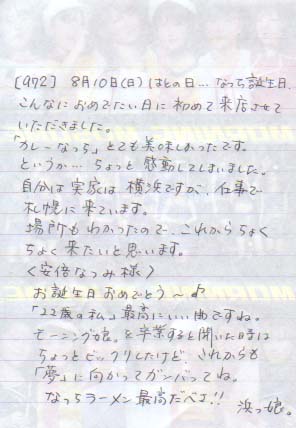 [972] 8月10日(日)はとの日…なっち誕生日、
こんなにおめでたい日に初めて来店させて
いただきました。
「カレーなっち」とても美味しかったです。
というか…ちょっと感動してしまいました。
自分は実家は横浜ですが、仕事で
札幌に来ています。
場所もわかったので、これからちょく
ちょく来たいと思います。
〈安倍なつみ様〉
お誕生日おめでとう〜♪
「22歳の私」最高にいい曲ですね。
モーニング娘。を卒業すると聞いた時は
ちょっとビックリしたけど、これからも
「夢」に向かってガンバってね。
なっちラーメン最高だべさ!!
浜っ娘。